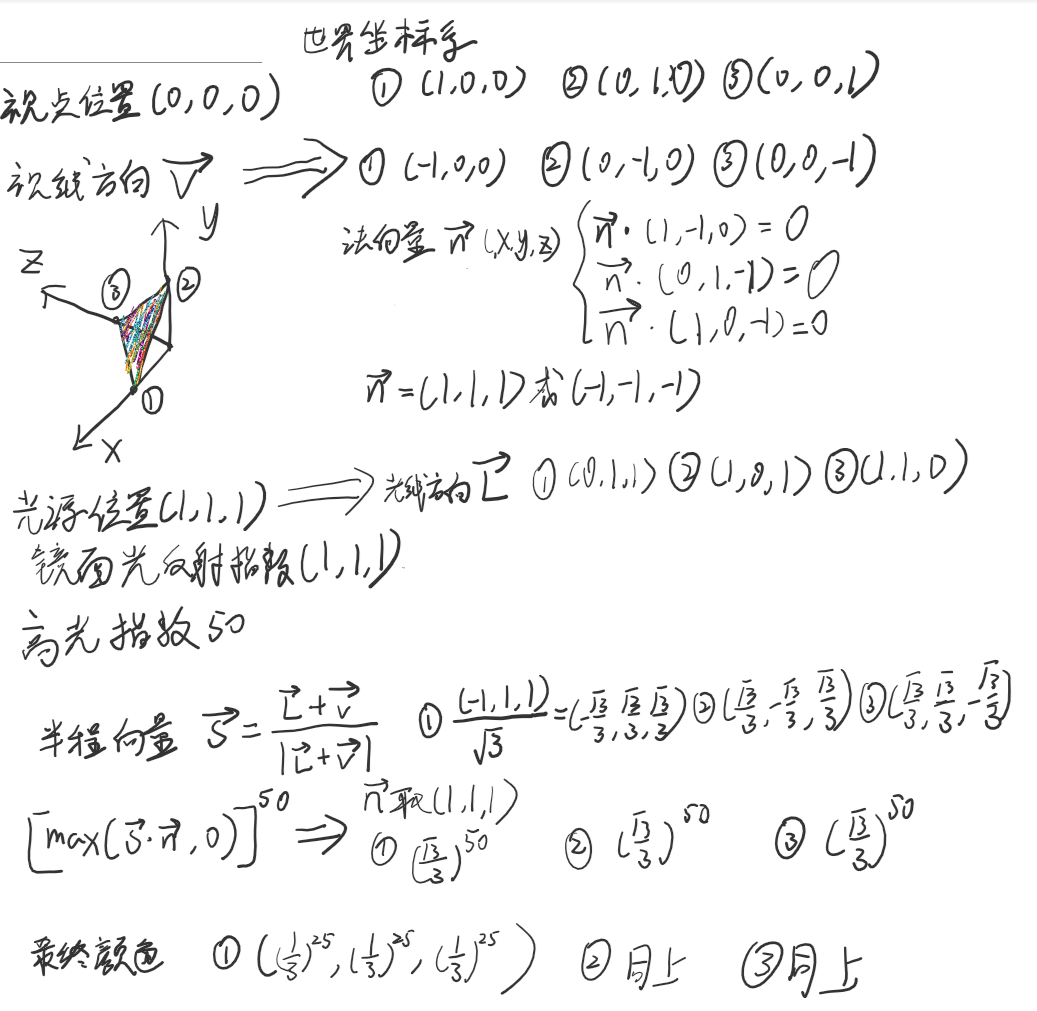 世界坐标系
① (1,0,0) ② (0,1,0) ③ (0,0,1)
视点位置 (0,0,0)
视线方向 V ⇒ ① (-1,0,0) ② (0,-1,0) ③ (0,0,-1)
法向量 n (x,y,z) { n · (1,-1,0) = 0
n · (0,1,-1) = 0
n · (1,0,-1) = 0
y
z
③ ②
①
x
n = (1,1,1) 或 (-1,-1,-1)
光源位置 (1,1,1) ⇒ 光线方向 L ① (0,1,1) ② (1,0,1) ③ (1,1,0)
镜面光反射指数 (1,1,1)
高光指数 50
半程向量 S = (L+V)/|L+V| ① (-1,1,1)/√3 = (-√3/3, √3/3, √3/3) ② (√3/3, -√3/3, √3/3) ③ (√3/3, √3/3, -√3/3)
n 取 (1,1,1)
[max(S·n, 0)]^50 ⇒ ① (√3/3)^50 ② (√3/3)^50 ③ (√3/3)^50
最终颜色 ① ((1/3)^25, (1/3)^25, (1/3)^25) ② 同上 ③ 同上